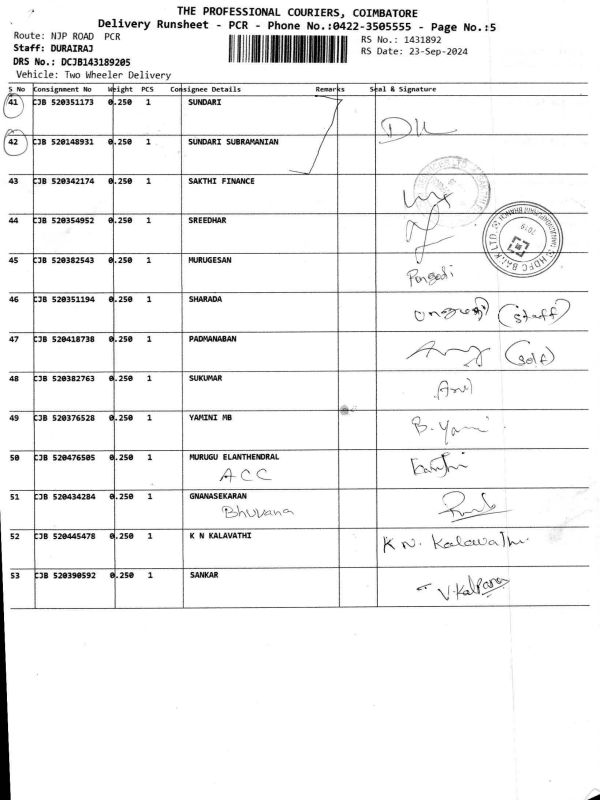 THE PROFESSIONAL COURIERS, COIMBATORE
Delivery Runsheet - PCR - Phone No.:0422-3505555 - Page No.:5
Route: NJP ROAD PCR
RS No.: 1431892
Staff: DURAIRAJ
RS Date: 23-Sep-2024
DRS No.: DCJB143189205
Vehicle: Two Wheeler Delivery
S No Consignment No Weight PCS Consignee Details Remarks Seal & Signature
41 CJB 520351173 0.250 1 SUNDARI
42 CJB 520148931 0.250 1 SUNDARI SUBRAMANIAN
43 CJB 520342174 0.250 1 SAKTHI FINANCE
44 CJB 520354952 0.250 1 SREEDHAR
HDFC BANK LTD.
45 CJB 520382543 0.250 1 MURUGESAN
46 CJB 520351194 0.250 1 SHARADA
(Staff)
47 CJB 520418738 0.250 1 PADMANABAN
(Self)
48 CJB 520382763 0.250 1 SUKUMAR
49 CJB 520376528 0.250 1 YAMINI MB
B. Yamini
50 CJB 520476505 0.250 1 MURUGU ELANTHENDRAL
ACC
51 CJB 520434284 0.250 1 GNANASEKARAN
Bhuvana
52 CJB 520445478 0.250 1 K N KALAVATHI
K N. Kalavathi
53 CJB 520390592 0.250 1 SANKAR
V. Kalpana